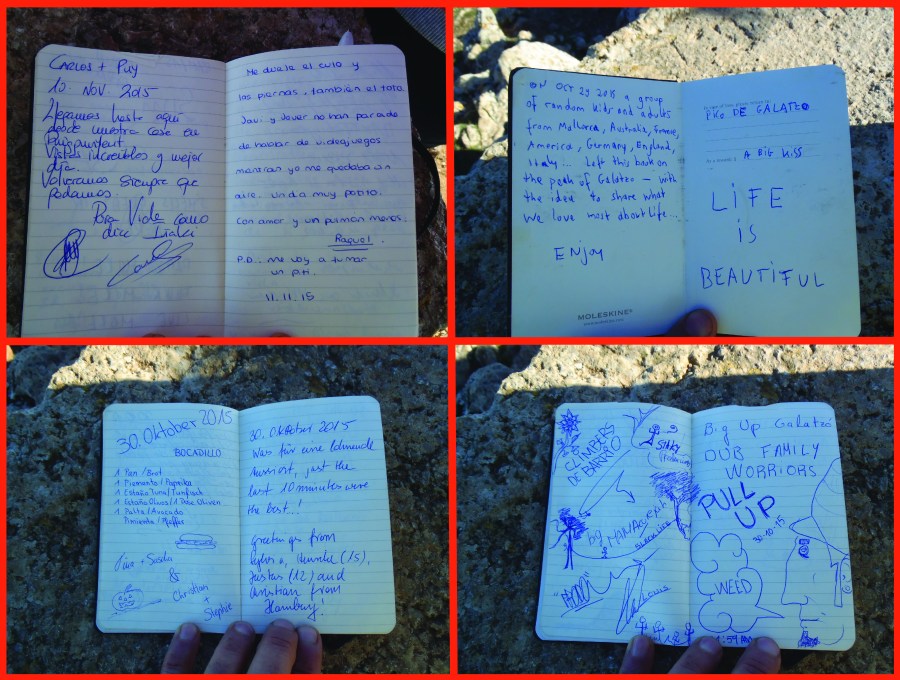 CARLOS + PUY
10 NOV 2015
Llegamos hasta aquí
desde nuestra casa en
Puigpunyent.
Vistas increíbles y mejor
día.
Volveremos siempre que
podamos.
Big Vida como
dice Iñaki
Me duele el culo y
las piernas, también el toto.
Javi y Javer no han parado
de hablar de videojuegos
mentras yo me quedaba sin
aire. un dia muy bonito.
Con amor y un pulmón menos.
Raquel.
P.D.. me voy a fumar
un piti.
11.11.15
ON OCT 29 2015 a group
of random kids and adults
from Mallorca, Australia, France,
America, Germany, England,
Italy... Left this book on
the peak of Galatzo — with
the idea to share what
we love most about life...
ENJOY
MOLESKINE®
PIKO DE GALATZO
A BIG KISS
LiFE
iS
BEAUTiFUL
30. Oktober 2015
BOCADILLO
1 Pan / Brot
1 Pimento / Paprika
1 Estaño Tuna / Tunfisch
1 Estaño Olivas / 1 Dose Oliven
1 Palta / Avocado
Pimienta / Pfeffer
&
Christian
+
Stephie
30. Oktober 2015
Was für eine lohnende
Aussicht, just the
last 10 minutes were
the best...!
Greetings from
(15),
Justus (12) and
Christian from
Hamburg!
CLIMBERS
DE BARRIO
by
Big Up Galatzó
DUB FAMILY
WORRIORS
PULL
UP
30-10-15
WEED